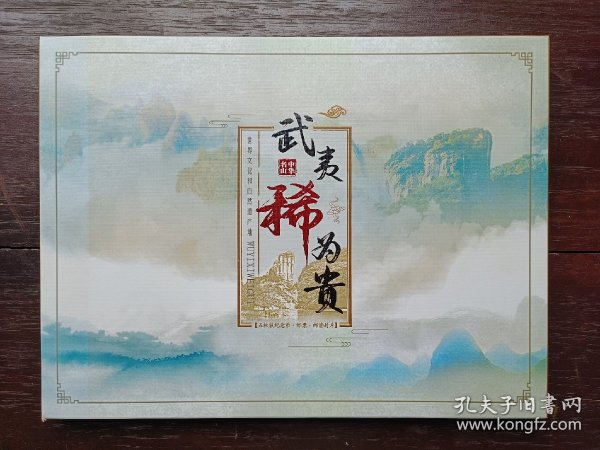 武夷
稀
为贵
中华
名山
世界文化和自然遗产地
WUYIXIWEIGUI
孔夫子旧書网
www.kongfz.com